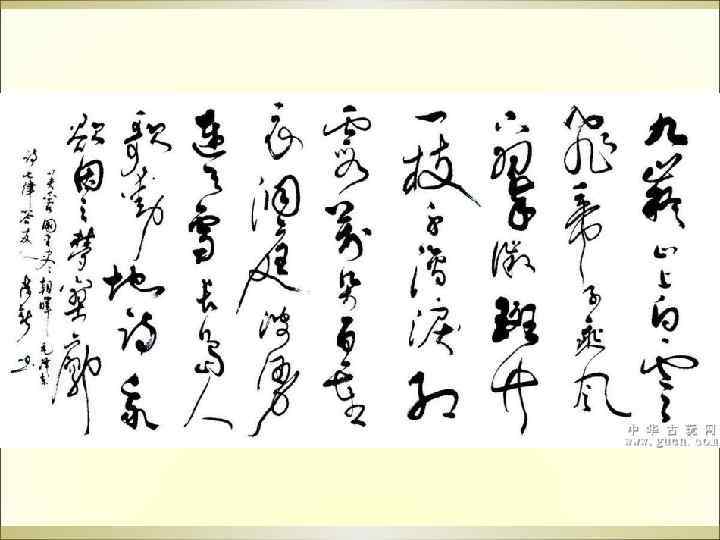 九嶷山上白雲
飛帝子乘风
下翠微斑竹
一枝千滴淚红
霞萬朵百重
衣洞庭波涌
連天雪長島人
歌動地詩我
欲因之夢寥廓
芙蓉國里尽朝暉 毛泽东
诗七律答友人
中华古玩网
www.gucn.com